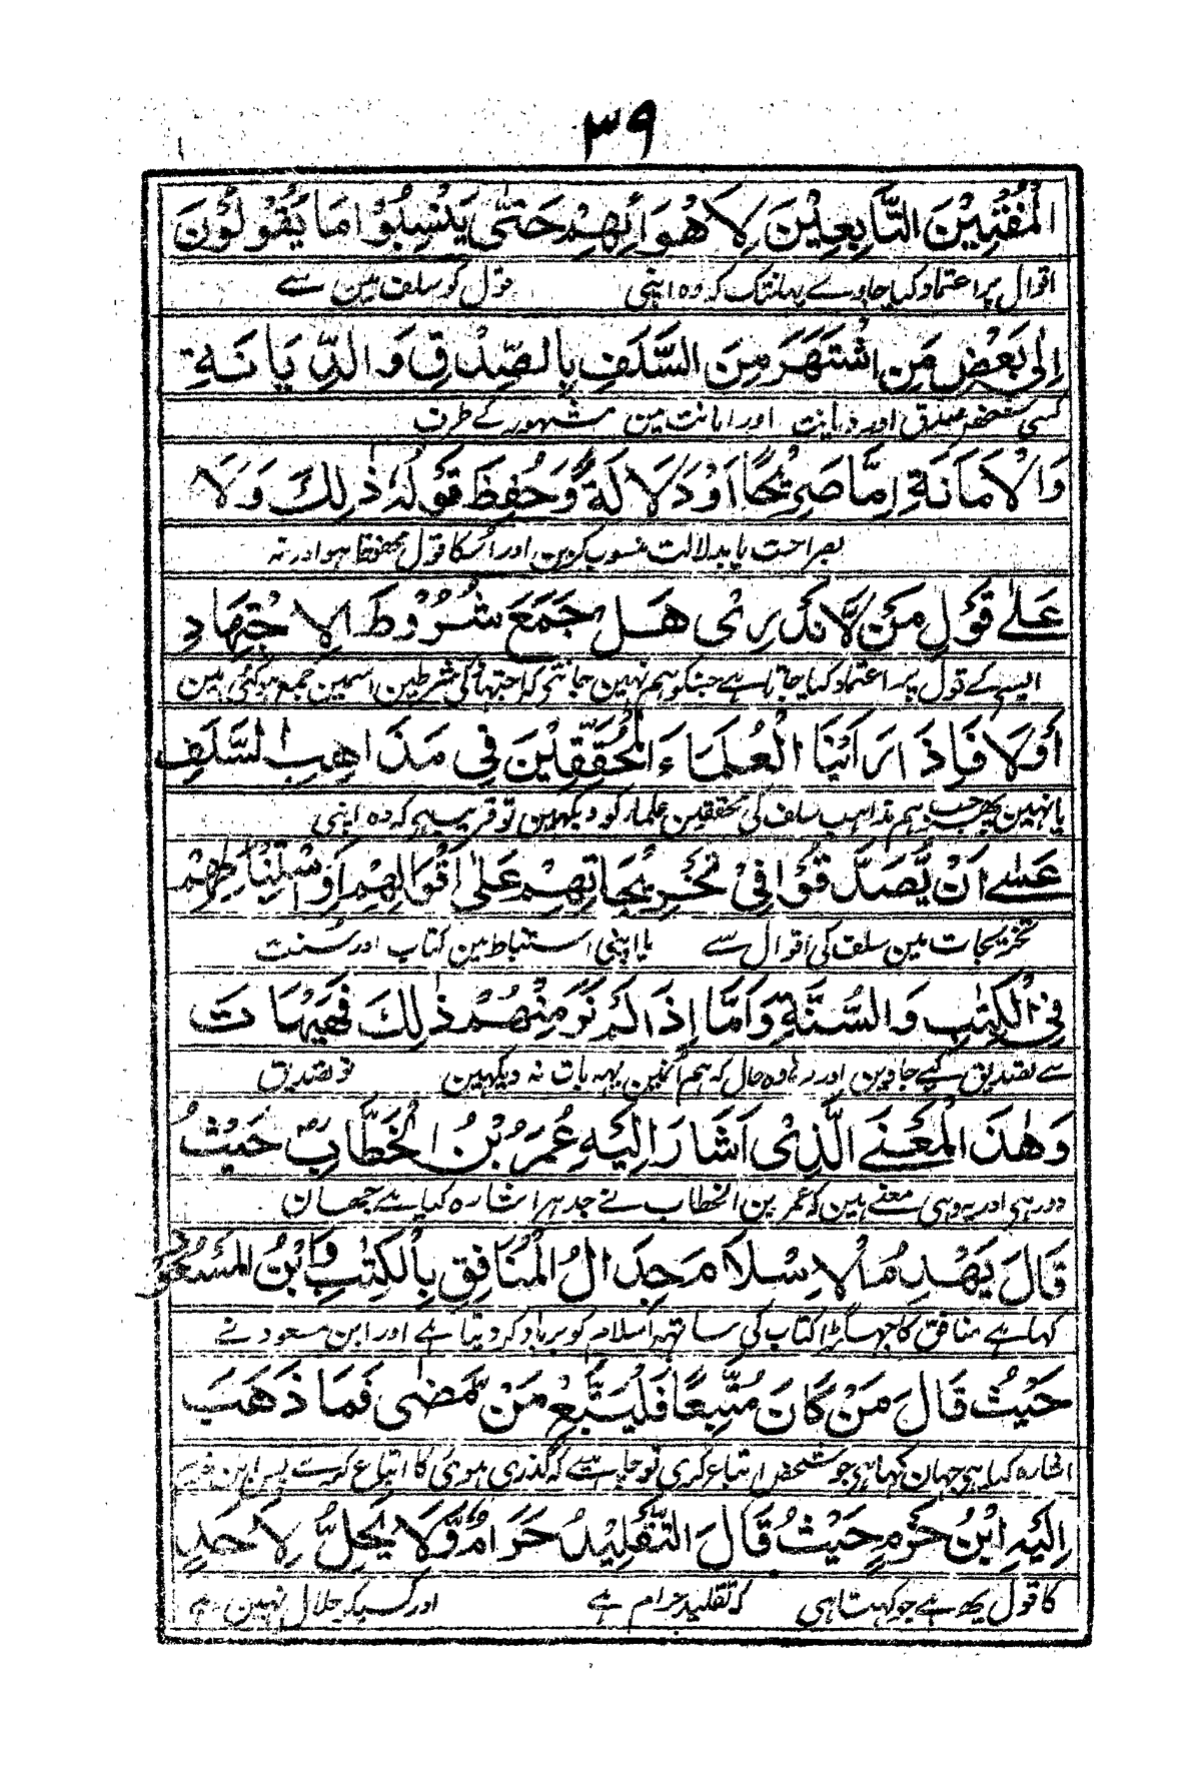 ۳۹
الْمُفْتِيْنَ التَّابِعِيْنَ لِاَهْوَائِهِمْ حَتّٰى يَنْسِبُوْا مَا يَقُوْلُوْنَ
اقوال پر اعتماد کیا جاوے یہانتک کہ وہ اپنی قول کو سلف مین سے
اِلٰى بَعْضِ مَنِ اشْتَهَرَ مِنَ السَّلَفِ بِالصِّدْقِ وَالدِّيَانَةِ
کسی شخص صدق اور دیانت اور امانت مین مشہور کے طرف
وَالْاَمَانَةِ اِمَّا صَرِيْحًا اَوْ دَلَالَةً وَحُفِظَ قَوْلُهٗ ذٰلِكَ وَلَا
بصراحت یا بدلالت منسوب کرین اور اُسکا قول محفوظ ہو اور نہ
عَلٰى قَوْلِ مَنْ لَّا نَدْرِىْ هَلْ جَمَعَ شُرُوْطَ الِاجْتِهَادِ
ایسے کے قول پر اعتماد کیا جاتا ہے جسکو ہم نہین جانتی کہ اجتہاد کی شرطین اسمین جمع ہو گئی ہین
اَوْ لَا فَاِذَا رَاَيْنَا الْعُلَمَاءَ الْمُحَقِّقِيْنَ فِى مَذَاهِبِ السَّلَفِ
یا نہین پھر جب ہم مذاہب سلف کی محققین علماء کو دیکھین تو قریب ہے کہ وہ اپنی
عَسٰے اَنْ يُّصَدَّقُوْا فِىْ تَخْرِيْجَاتِهِمْ عَلٰى اَقْوَالِهِمْ اَوِ اسْتِنْبَاطِهِمْ
تخریجات مین سلف کی اقوال سے یا اپنی استنباط مین کتاب اور سُنت
فِى الْكِتٰبِ وَالسُّنَّةِ وَاَمَّا اِذَا لَمْ نَرَ مِنْهُمْ ذٰلِكَ فَهَيْهَاتَ
سے تصدیق کیے جاوین اور رہے وہ حال کہ ہم اُنمین یہہ بات نہ دیکھین تو تصدیق
وَهٰذَا الْمَعْنَے الَّذِىْ اَشَارَ اِلَيْهِ عُمَرُ بْنُ الْخَطَّابِ حَيْثُ
دور ہی اور یہ وہی معنے ہین کہ عمر بن الخطاب نے جدہر اشارہ کیا ہے جہان
قَالَ يَهْدِمُ الْاِسْلَامَ جِدَالُ الْمُنَافِقِ بِالْكِتٰبِ وَابْنُ الْمَسْعُوْدِ
کہا ہے منافق کا جہگڑا کتاب کی ساتھہ اسلام کو برباد کر دیتا ہے اور ابن مسعود نے
حَيْثُ قَالَ مَنْ كَانَ مُتَّبِعًا فَلْيَتَّبِعْ مَنْ مَّضٰى فَمَا ذَهَبَ
اشارہ کیا ہی جہان کہا ہی جو شخص اتباع کری تو چاہئے کہ گذری ہووی کا اتباع کرے پس ابن حزم
اِلَيْهِ ابْنُ حَزْمٍ حَيْثُ قَالَ التَّقْلِيْدُ حَرَامٌ وَّلَا يَحِلُّ لِاَحَدٍ
کا قول یہہ ہے جو کہتا ہی کہ تقلید حرام ہے اور کسیکو حلال نہین ہے